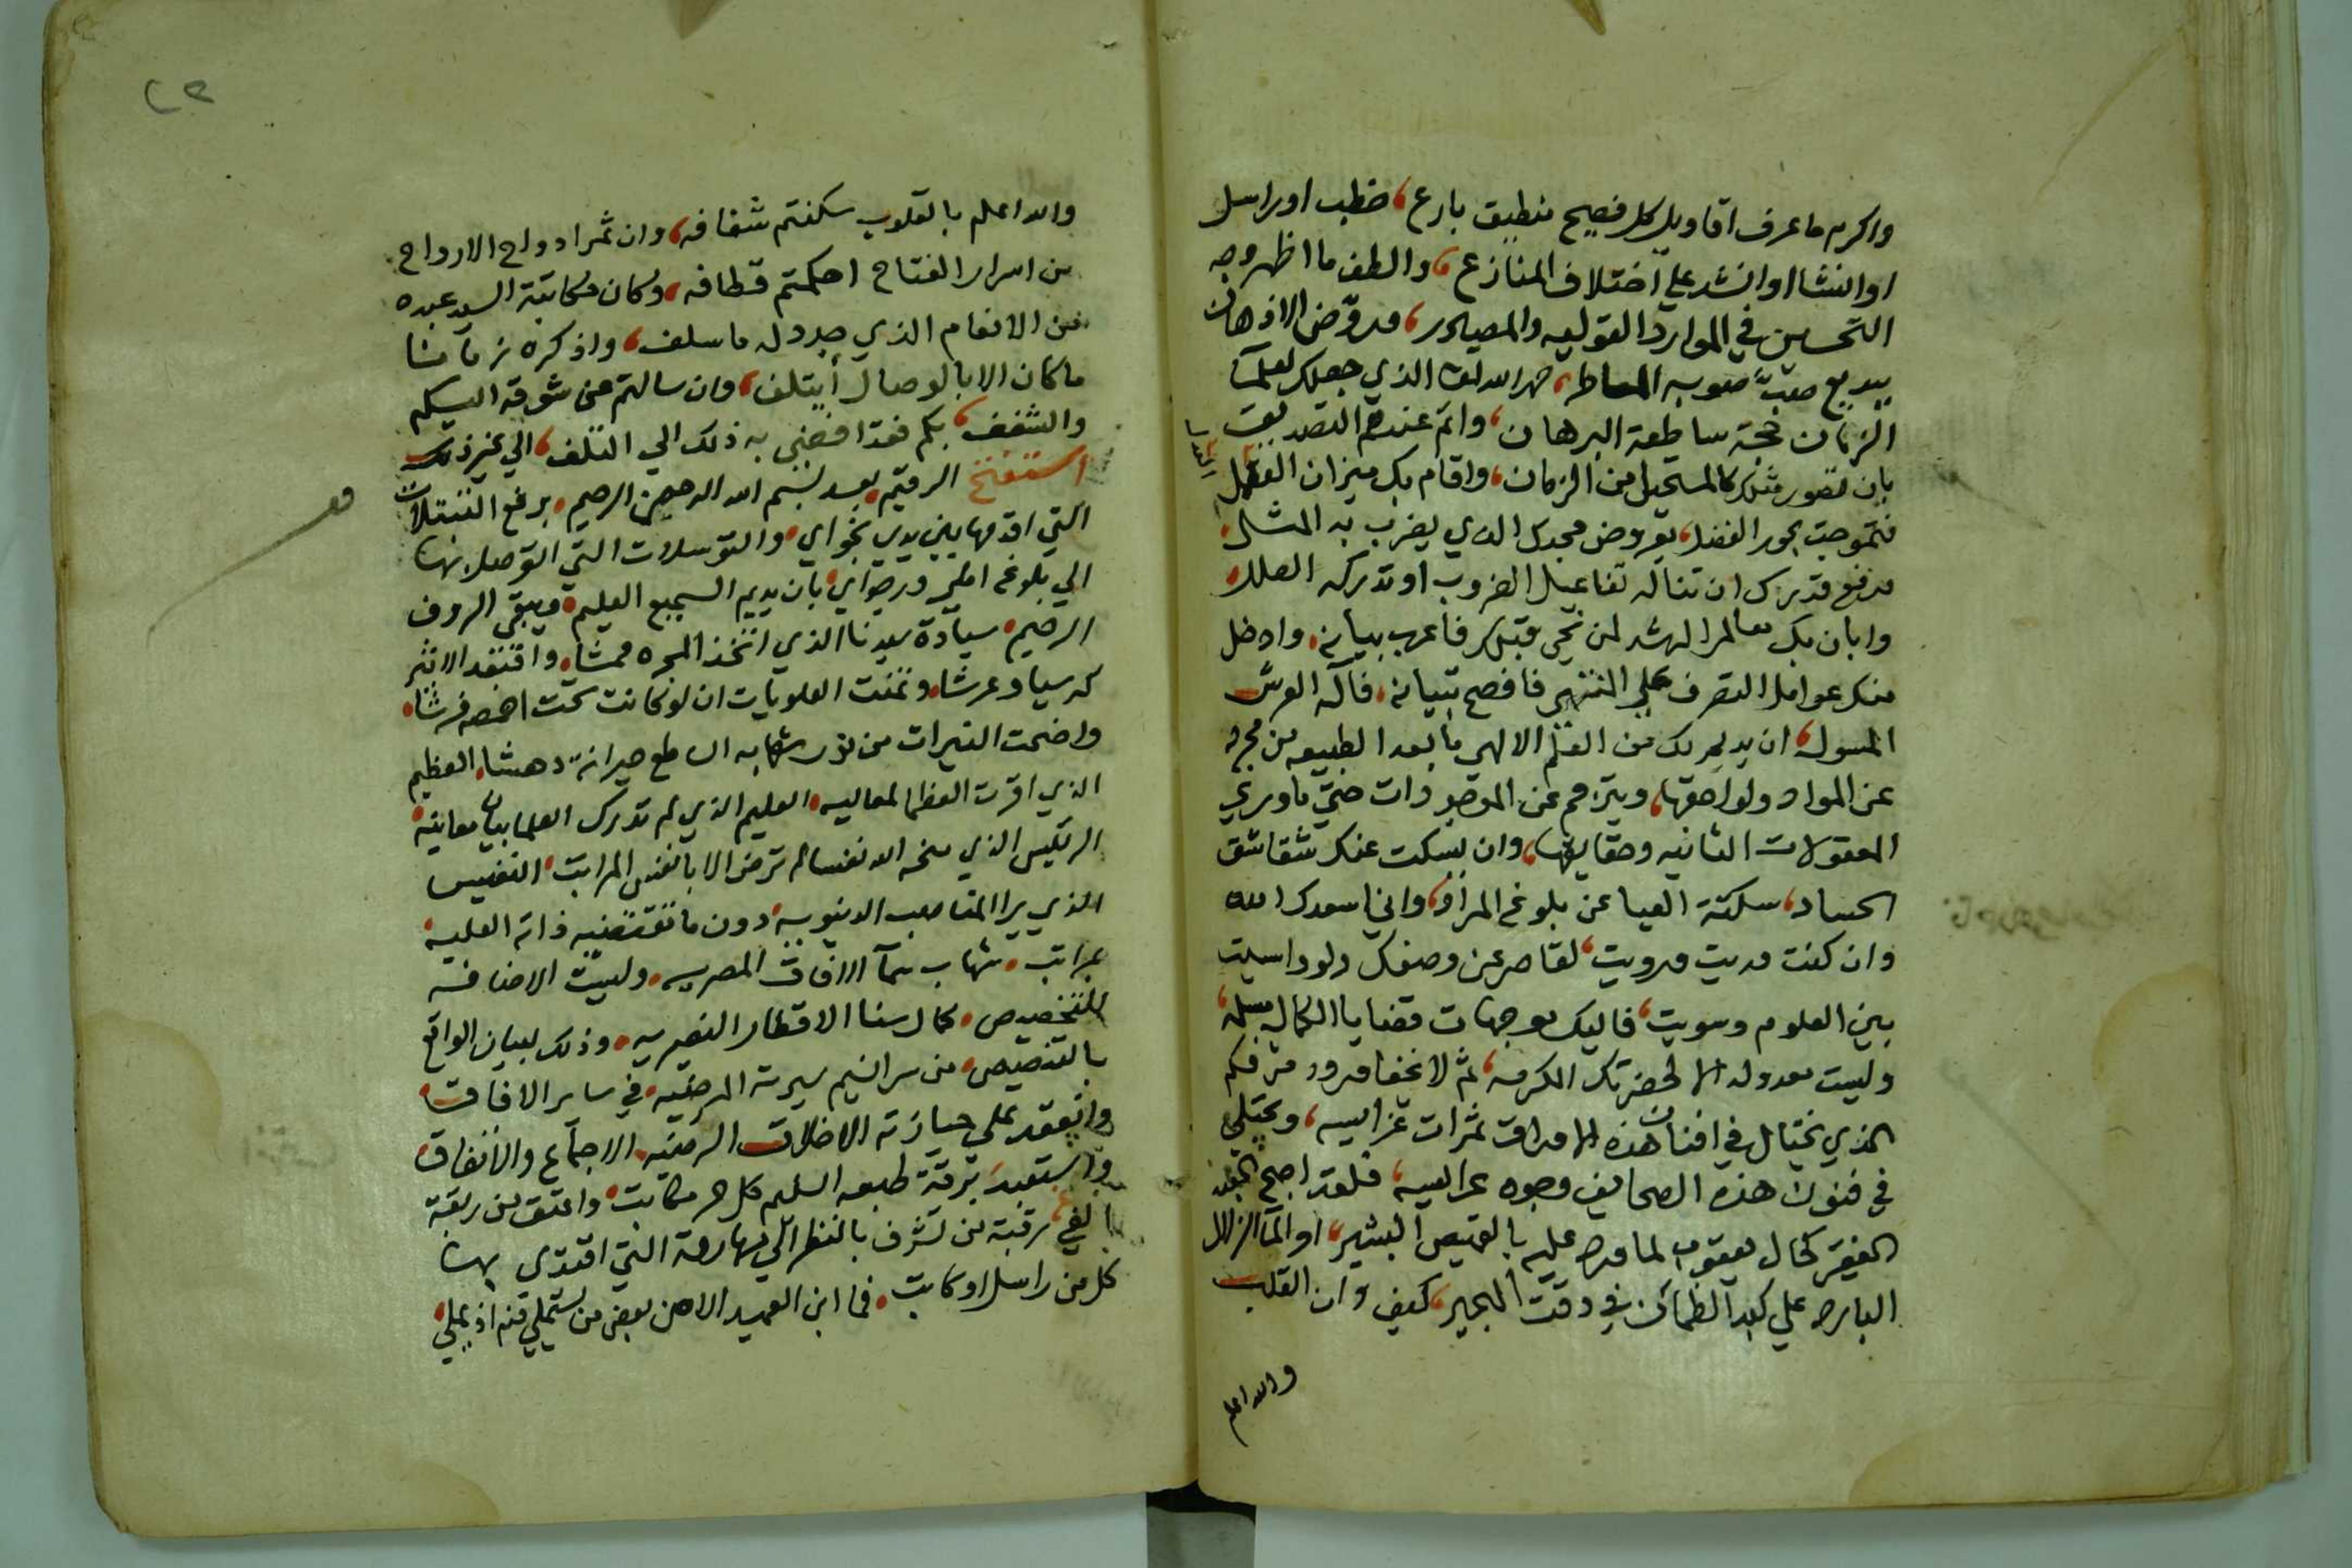 واكرم ما عرف اقاويل كل فصيح منطيق بارع، خطب او راسل
او انشا او انشد علي اختلاف المنازع، والطف ما اظهر وجه
التحسين في الموارد القوليه والمصادر، وروض الاذهان
ببديع صيب صوبه الماطر، حمد الله الذي جعلك لعلماء
الزمان حجة ساطعة البرهان، واتم عندهم التصديق
بان تصور مثلك كالمستحيل من الزمان، واقام بك ميزان الفضل
فتموجت بحور الفضل، بعروض مجدك الذي يضرب به المثل،
ورفع قدرك ان تناله تفاعيل الضروب او تدركه العلل،
وابان بك معالم الرشد لمن نحي قبلك فاعرب ببيانه، وادخل
منك عوامل التصرف علي النهي فافصح تبيانه، فآله العرش
المسول، ان يديم لك من العلم الالهي ما بعد الطبيعه من مجرد
عن المواد ولواحقها، ويترجم عن الموجودات حتي ما وري
المعقولات الثانيه وحقايقها، وان يسكت عنك شقاشق
الحساد، سكتة العيا عن بلوغ المراد، واني اسعدك الله
وان كنت دريت ورويت، لقاصر عن وصفك ولو واسيت
بين العلوم وسويت، فاليك موجهات قضايا الكمال مسلمه،
وليست معدوله الا لحضرتك المكرمه، ثم لا يخفا ورود مرقكم
الذي يختال في افنان هذه الاوراق ثمرات غرايبه، ويجتلي
في فنون هذه الصحايف وجوه عرايسه، فلقد اصبح العبد
الفقير كحال يعقوب لما ورد عليه بالقميص البشير، او الماء الزلال
البارد علي كبد الظمآن في وقت الهجير، كيف وان القلب
والله اعلم
والله اعلم بالقلوب سكنتم شغافه، وان ثمر ادواح الارواح
من اسرار الفتاح احكمتم قطافه، وكان مكاتبة السيد عبده
من الانعام الذي جدد له ما سلف، واذكره زمانا
ما كان الا بالوصال ايتلف، وان سالتم عن شوقه اليكم
والشغف، بكم فقد افضي به ذلك الي التلف، الي غير ذلك
استفتح الرقيم بعد بسم الله الرحمن الرحيم، برفع التبتلات
التي اقدمها بين يدي نجواي، والتوسلات التي اتوصل بها
الي بلوغ املي ورجواي، بان يديم السميع العليم، ويبقي الروف
الرحيم، سيادة سيدنا الذي اتخذ المجره ممشا، واقتعد الاثير
كرسيا وعرشا، وتمنت العلويات ان لو كانت تحت اخمصه فرشا،
واضحت النيرات من نور شهابه الساطع حيرانة دهشا، العظيم
الذي اقرت العظما لمعاليه، العليم الذي لم تدرك العلما بيان معانيه،
الرييس الذي منحه الله نفسا لم ترض الا بانفس المراتب، النفيس
الذي يرا المناصب الدنيويه، دون ما تقتضيه ذاته العليه
بمراتب، شهاب سمآ الافاق المصريه، وليست الاضافة
للتخصيص، كمال سنا الاقطار النصريه، وذلك لبيان الواقع
بالتنصيص، من سرا نسيم سيرته المرضيه، في ساير الافاق،
وانعقد علي حيازته الاخلاق الرضيه، الاجماع والاتفاق،
واستعبد برقة طبعه السليم كل حر مكاتب، واعتق من ربقة
الغي، رقبة من تشرف بالنظر الي مهارته التي اقتدي بها
كل من راسل او كاتب، فما ابن العميد الا من بعض من يستملي منه اذ يملي،